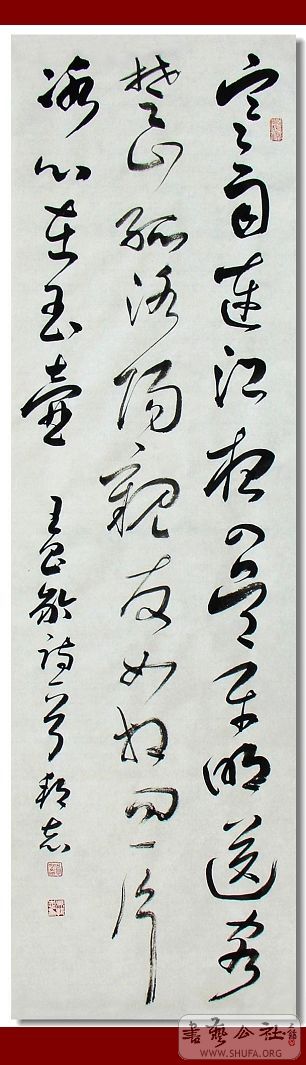 寒雨連江夜入吳平明送客
楚山孤洛陽親友如相問一片
冰心在玉壺
王昌齡詩一首
書藝公社
WWW.SHUFA.ORG